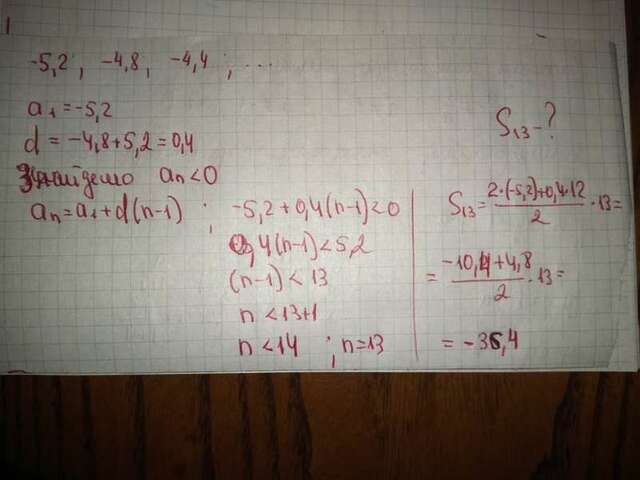 -5,2 ; -4,8, -4,4 ; ...
a₁ = -5,2
d = -4,8+5,2 = 0,4
Знайдемо aₙ<0
aₙ = a₁ + d(n-1) ; -5,2+0,4(n-1)<0
0,4(n-1)<5,2
(n-1) < 13
n < 13+1
n < 14 ; n=13
S₁₃ - ?
S₁₃ = (2·(-5,2)+0,4·12)/2 ·13=
= (-10,4+4,8)/2 ·13=
= -36,4